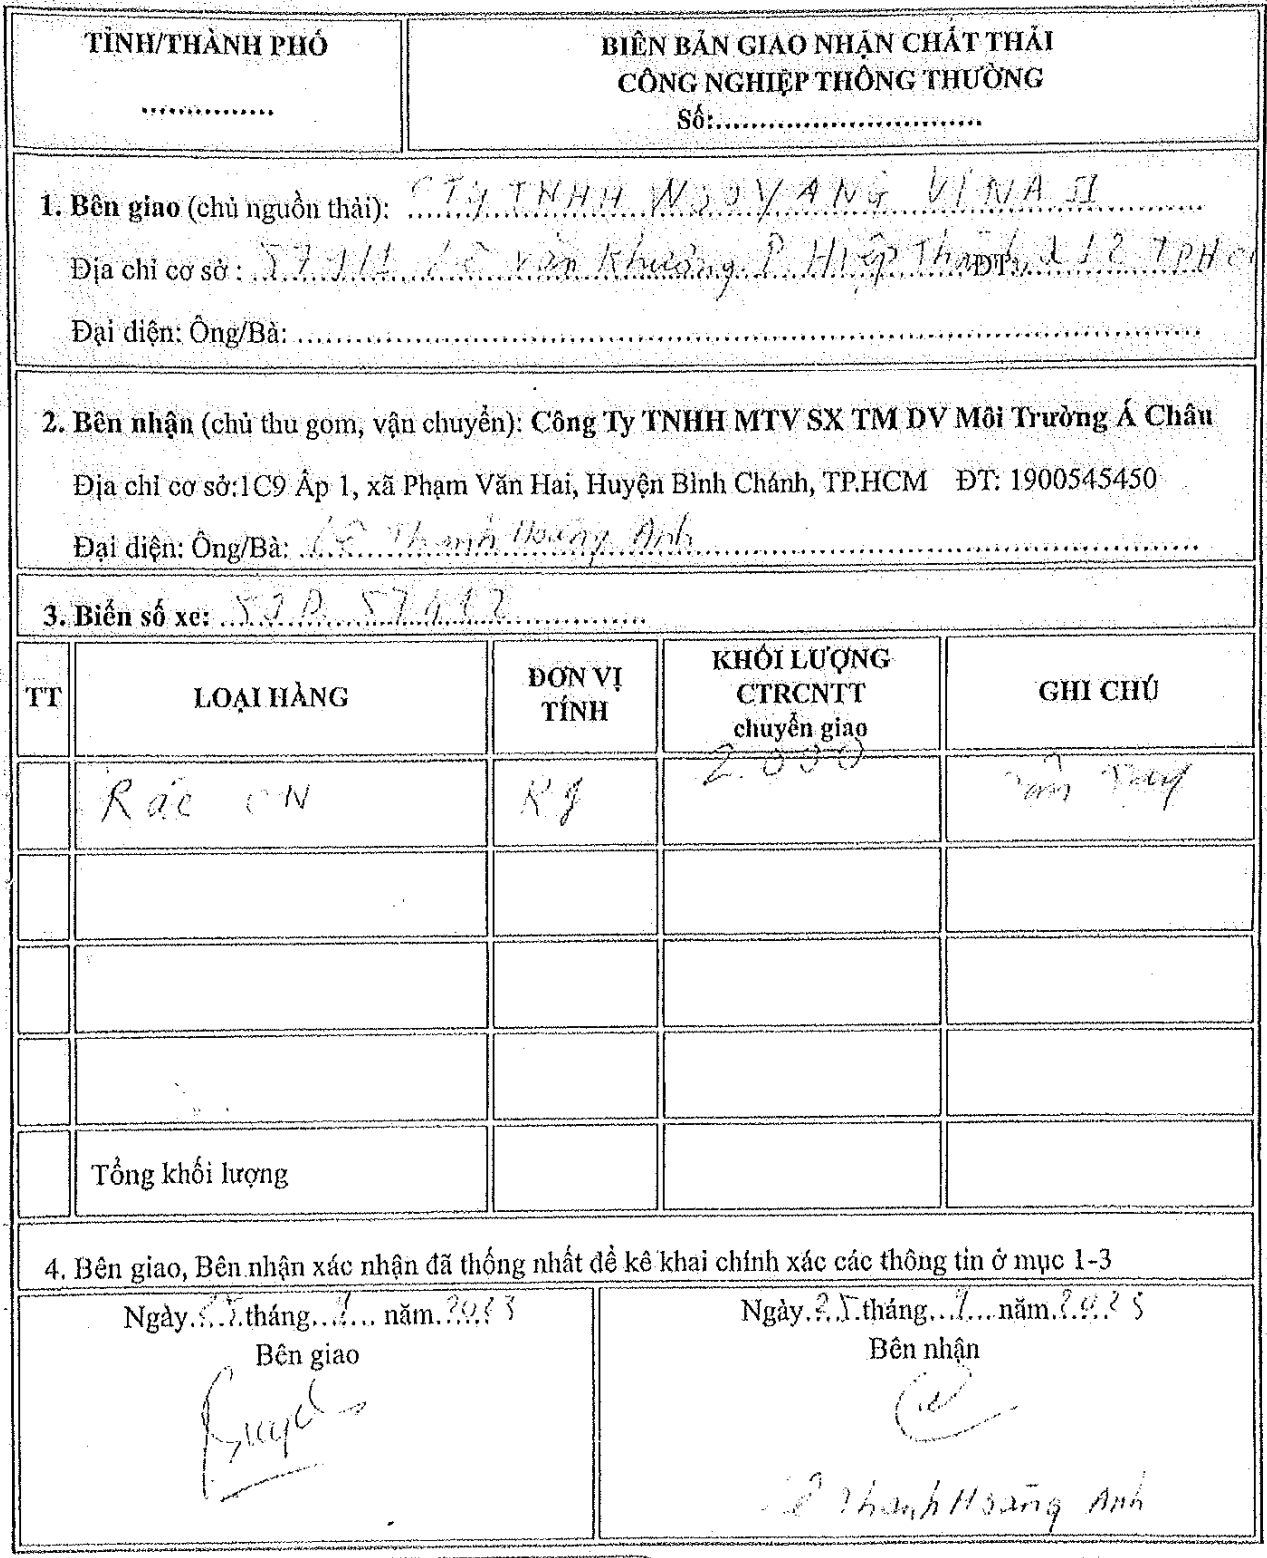 TỈNH/THÀNH PHỐ
..............
BIÊN BẢN GIAO NHẬN CHẤT THẢI
CÔNG NGHIỆP THÔNG THƯỜNG
Số:..............................
1. Bên giao (chủ nguồn thải): CTy TNHH VINA II
Địa chỉ cơ sở : Lê Văn Khương P Hiệp Thành ĐT: Q 12 TPHCM
Đại diện: Ông/Bà: ..............................
2. Bên nhận (chủ thu gom, vận chuyển): Công Ty TNHH MTV SX TM DV Môi Trường Á Châu
Địa chỉ cơ sở:1C9 Ấp 1, xã Phạm Văn Hai, Huyện Bình Chánh, TP.HCM ĐT: 1900545450
Đại diện: Ông/Bà: Lê Thanh Hoàng Anh
3. Biển số xe:
TT
LOẠI HÀNG
ĐƠN VỊ
TÍNH
KHỐI LƯỢNG
CTRCNTT
chuyển giao
GHI CHÚ
Rác CN
Kg
2.000
Tổng khối lượng
4. Bên giao, Bên nhận xác nhận đã thống nhất để kê khai chính xác các thông tin ở mục 1-3
Ngày 25 tháng năm
Bên giao
Ngày 25 tháng năm
Bên nhận
Lê Thanh Hoàng Anh